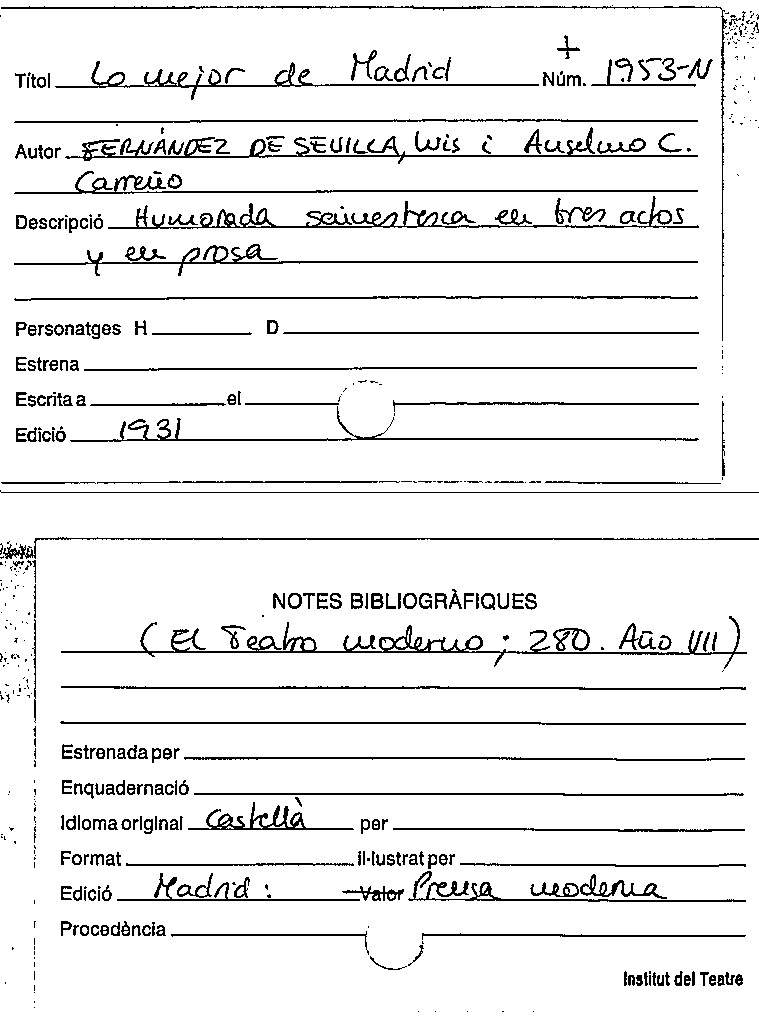 +
Títol Lo mejor de Madrid Núm. 1953-N
Autor FERNÁNDEZ DE SEVILLA, Luis i Anselmo C.
Carreño
Descripció Humorada sainestesca en tres actos
y en prosa
Personatges H D
Estrena
Escrita a el
Edició 1931
NOTES BIBLIOGRÀFIQUES
(El Teatro moderno; 280. Año VII)
Estrenada per
Enquadernació
Idioma original Castellà per
Format il·lustrat per
Edició Madrid: Valor Prensa moderna
Procedència
Institut del Teatre